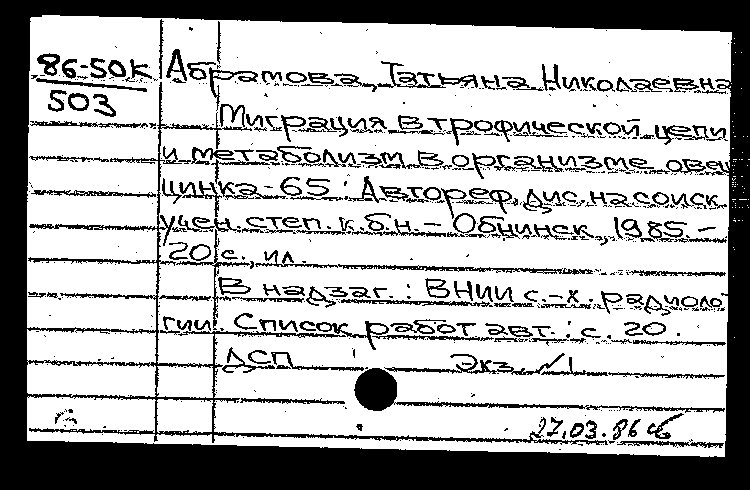 86-50К
503
Абрамова, Татьяна Николаевна
Миграция в трофической цепи
и метаболизм в организме овец
цинка-65 : Автореф. дис. на соиск.
учен. степ. к.б.н. – Обнинск, 1985. –
20 с., ил.
В надзаг.: ВНИИ с.-х. радиоло
гии. Список работ авт.: с. 20.
ДСП Экз. №1
27.03.86